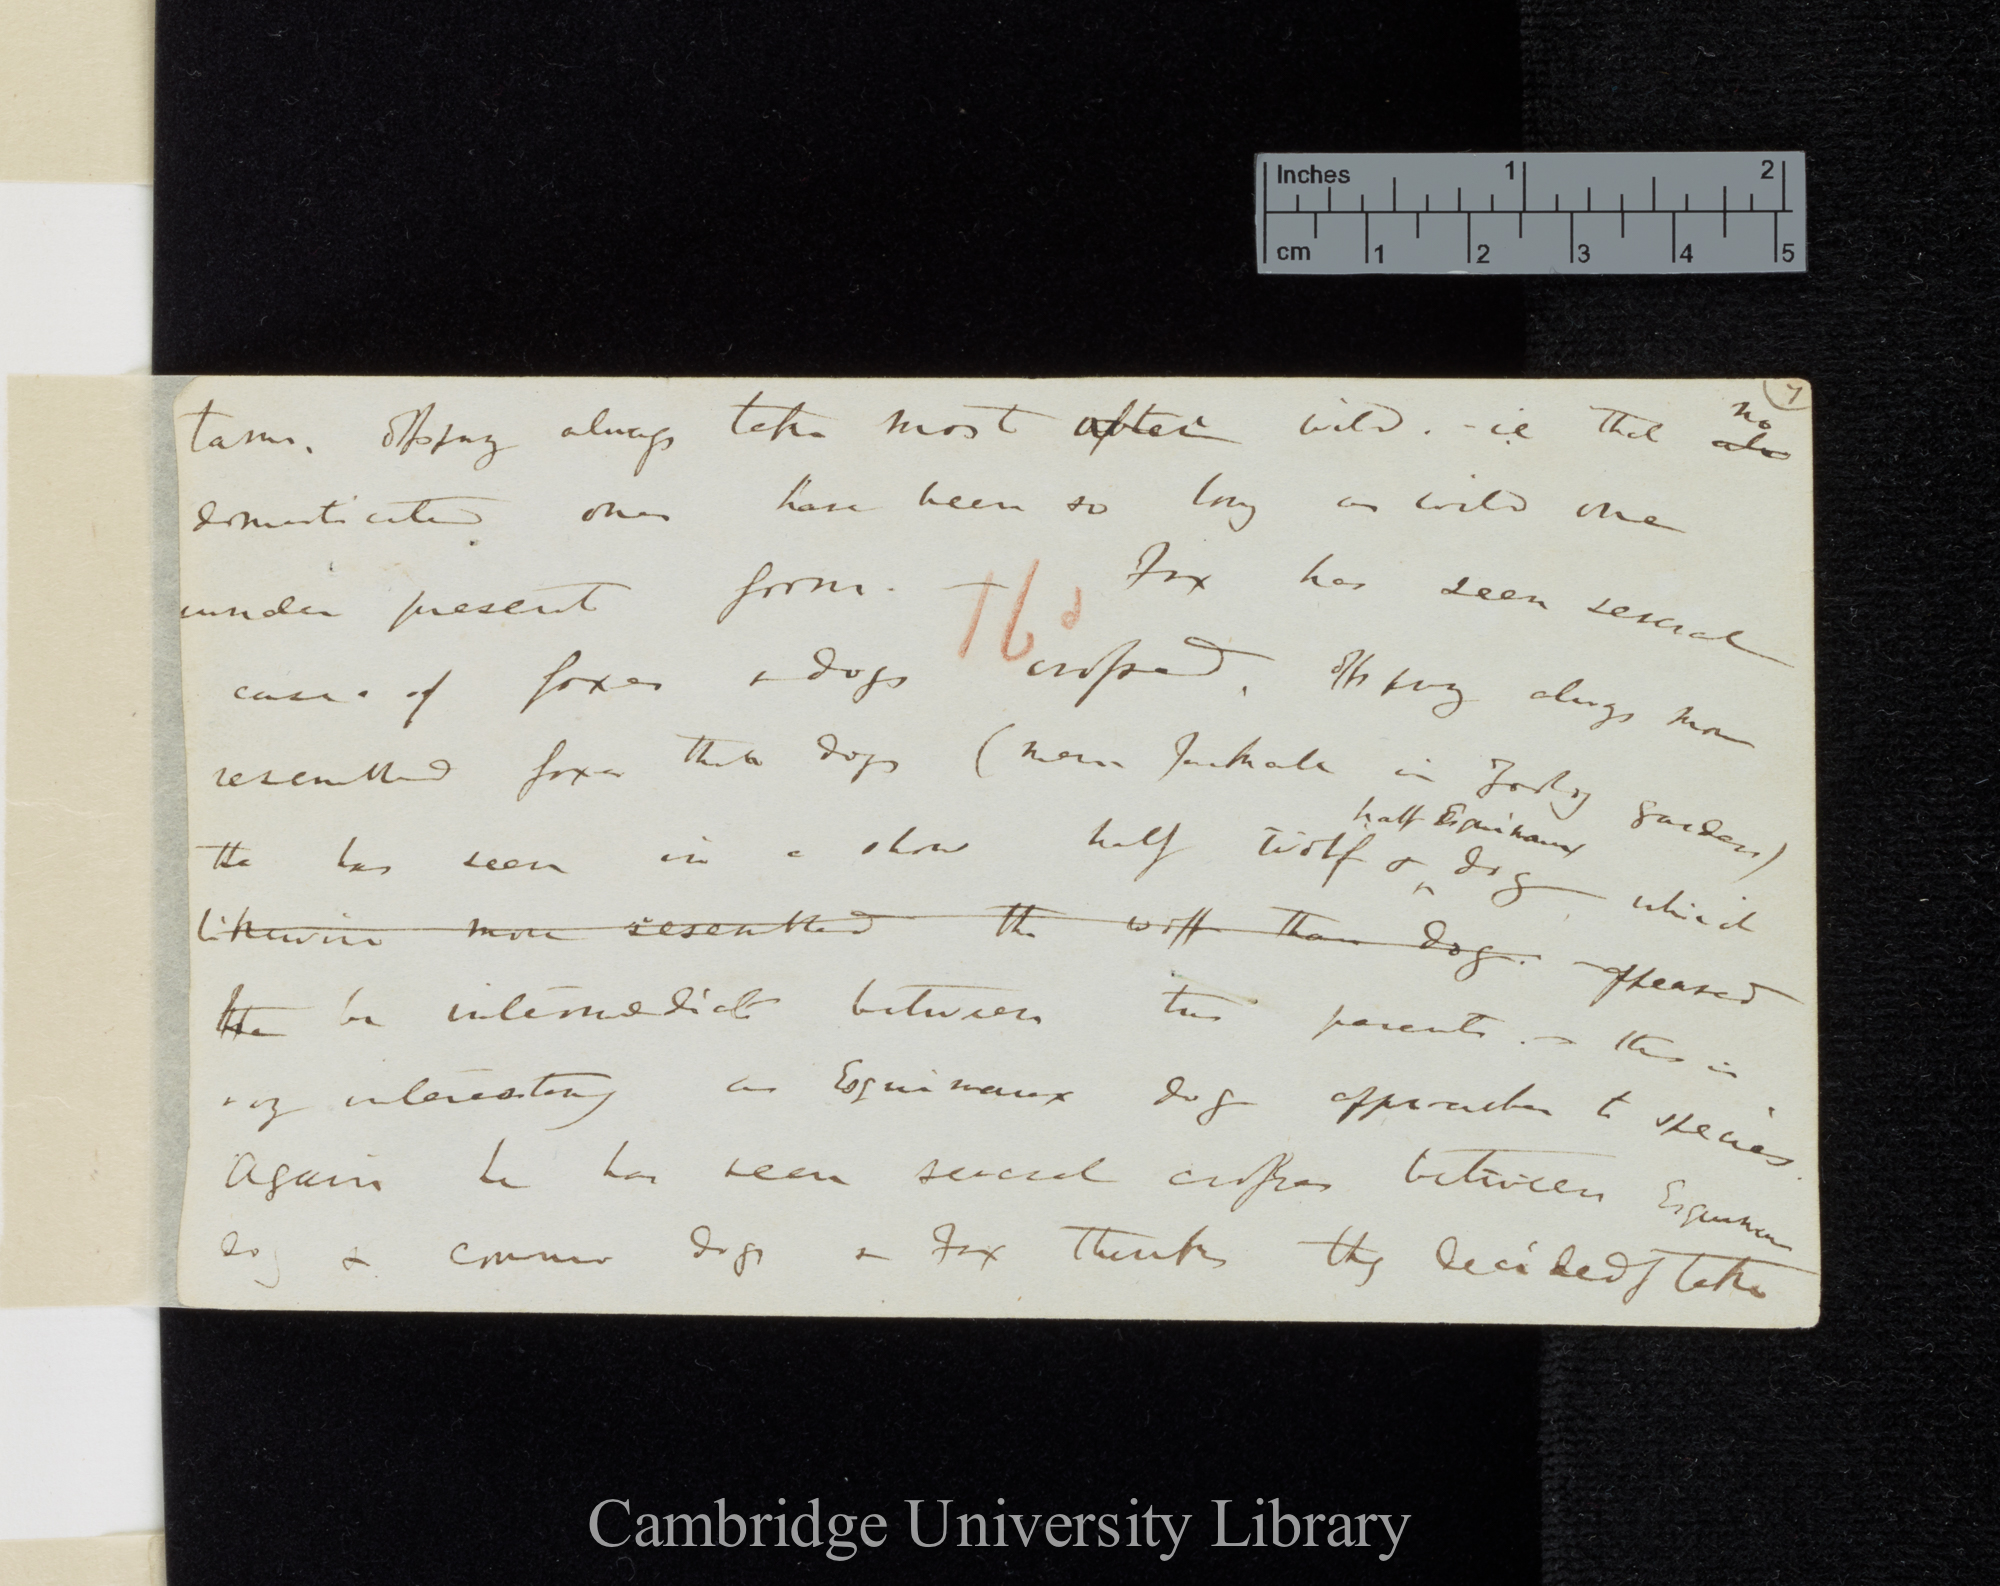 Inches 1 2
cm 1 2 3 4 5
7
tame, offspring always take most after wild. – ie that no
domesticated ones have been so long as wild one
under present form. — Fox has seen several
16d
cases of foxes & dogs crossed, offspring always more
resembled foxes than dogs (mem Jackals in Zoolog gardens)
half Esquimaux
He has seen in a show half wolf & dog, which
likewise more resembled the wolf than dog. appeared
be intermediate between two parents. & this is
very interesting as Esquimaux dog approaches to species.
Again he has seen several crosses between Esquimaux
dog & common dogs & Fox thinks they decidedly take
Cambridge University Library